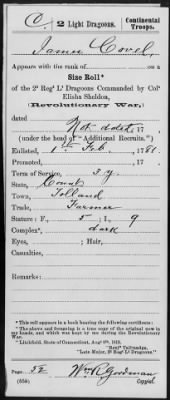 C. 2 Light Dragoons. Continental Troops.
James Covel,
Appears with the rank of on a
Size Roll*
of the 2d Regt Lt Dragoons Commanded by Col°
Elisha Sheldon,
(Revolutionary War,)
dated
Not dated, 17 ,
(under the head of "Additional Recruits.")
Enlisted, 1st Feb., 1781.
Promoted, , 17 .
Term of Service, 3 y.
State, Connt
Town, Tolland
Trade, Farmer
Stature: F., 5 ; I., 9
Complexn, dark
Eyes, ; Hair,
Casualties,
Remarks:
* This roll appears in a book bearing the following certificate:
"The above and foregoing is a true copy of the original now in my hands, and which was kept by me during the Revolutionary War.
"Litchfield, State of Connecticut, Augt 8th, 1832.
"Benjn Tallmadge,
"Late Major, 2d Regt Lt Dragoons."
Page 32 Wm R. Goodman
(638) Copyist.